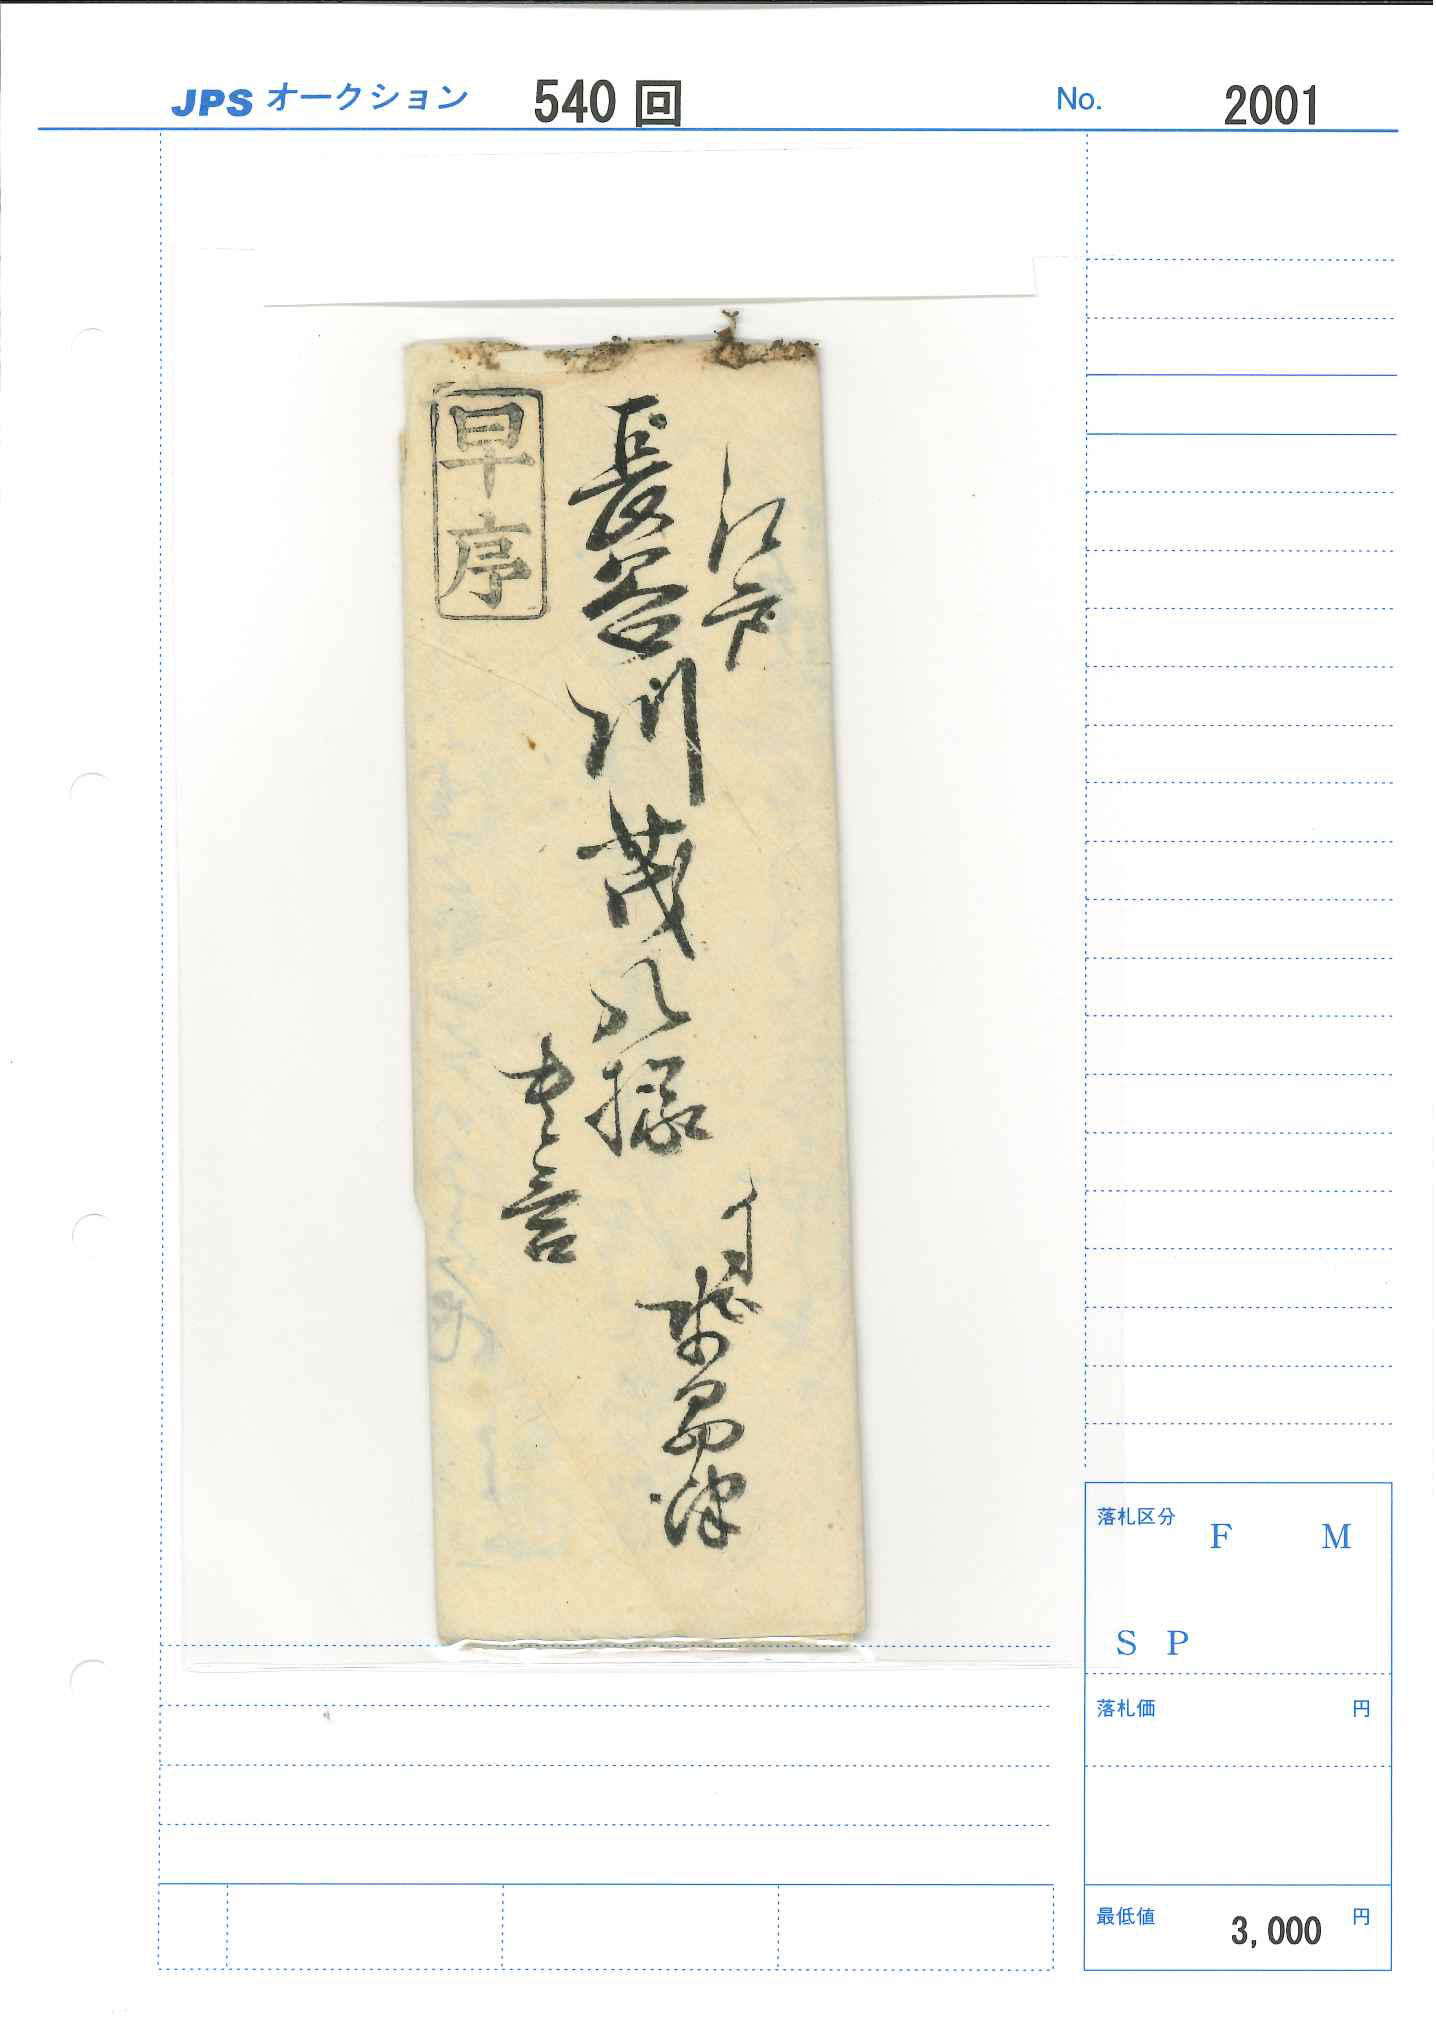 JPS オークション 540 回 No. 2001
江戸
長谷川茂八様
早序
落札区分 F M
S P
落札価 円
最低値 3,000 円